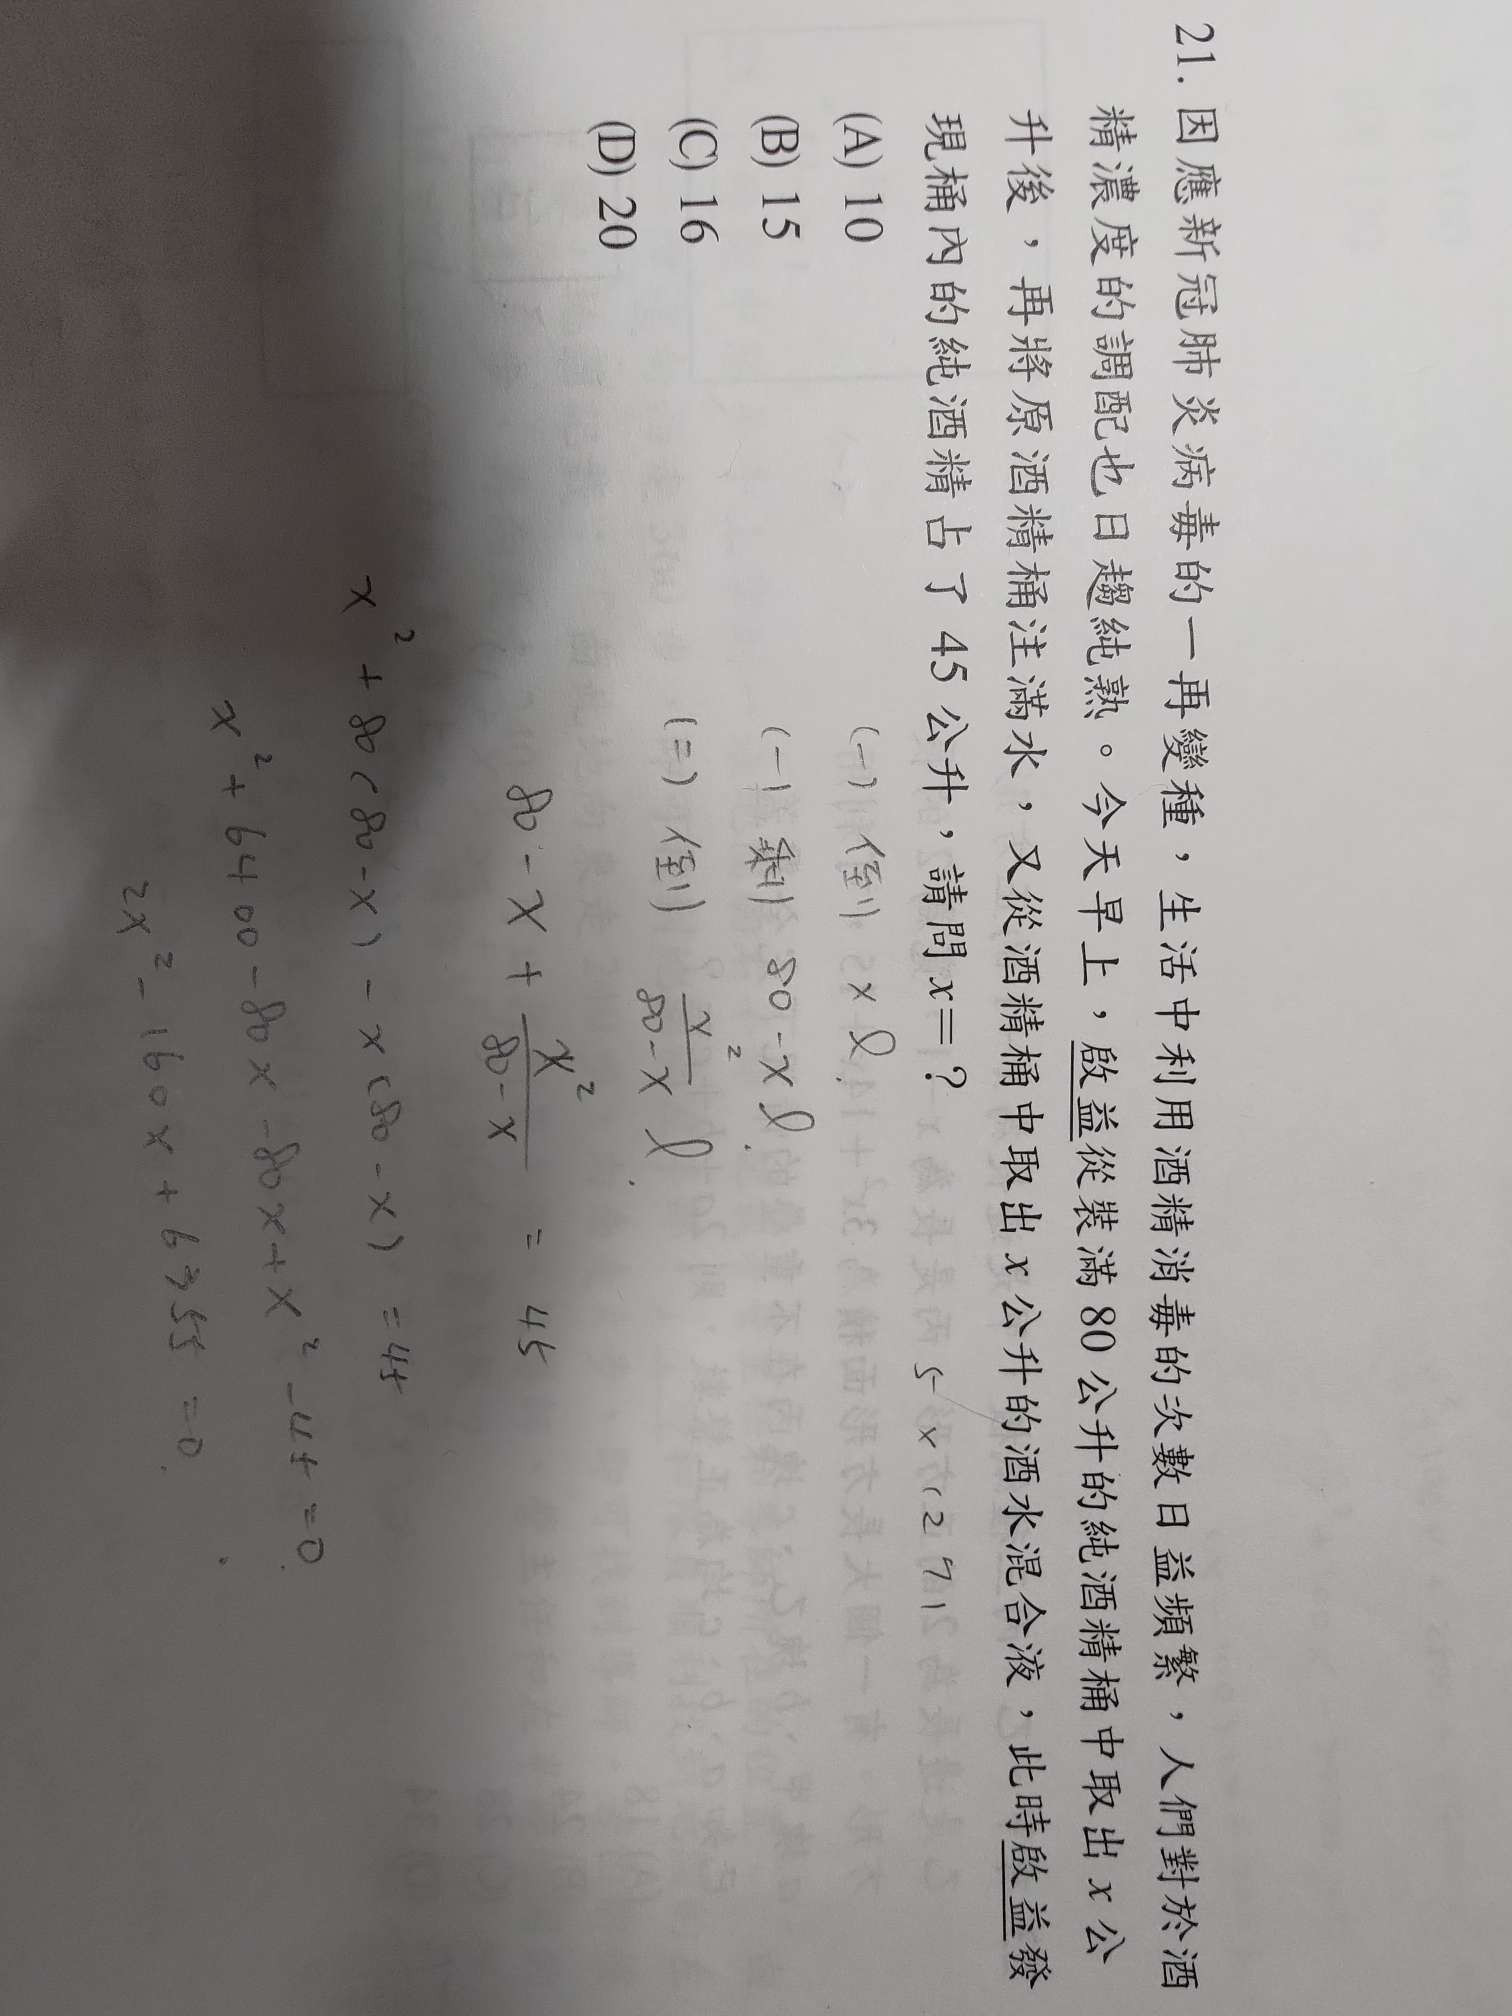 21. 因應新冠肺炎病毒的一再變種，生活中利用酒精消毒的次數日益頻繁，人們對於酒
精濃度的調配也日趨純熟。今天早上，啟益從裝滿 80 公升的純酒精桶中取出 x 公
升後，再將原酒精桶注滿水，又從酒精桶中取出 x 公升的酒水混合液，此時啟益發
現桶內的純酒精占了 45 公升，請問 x＝？
(A) 10
(B) 15
(C) 16
(D) 20
(一) 倒 x l
(一) 剩 80-x l
(二) 倒 x²/80-x l
80-x+x²/80-x = 45
x²+80(80-x)-x(80-x)=45
x²+6400-80x-80x+x²-45=0
2x²-160x+6355=0